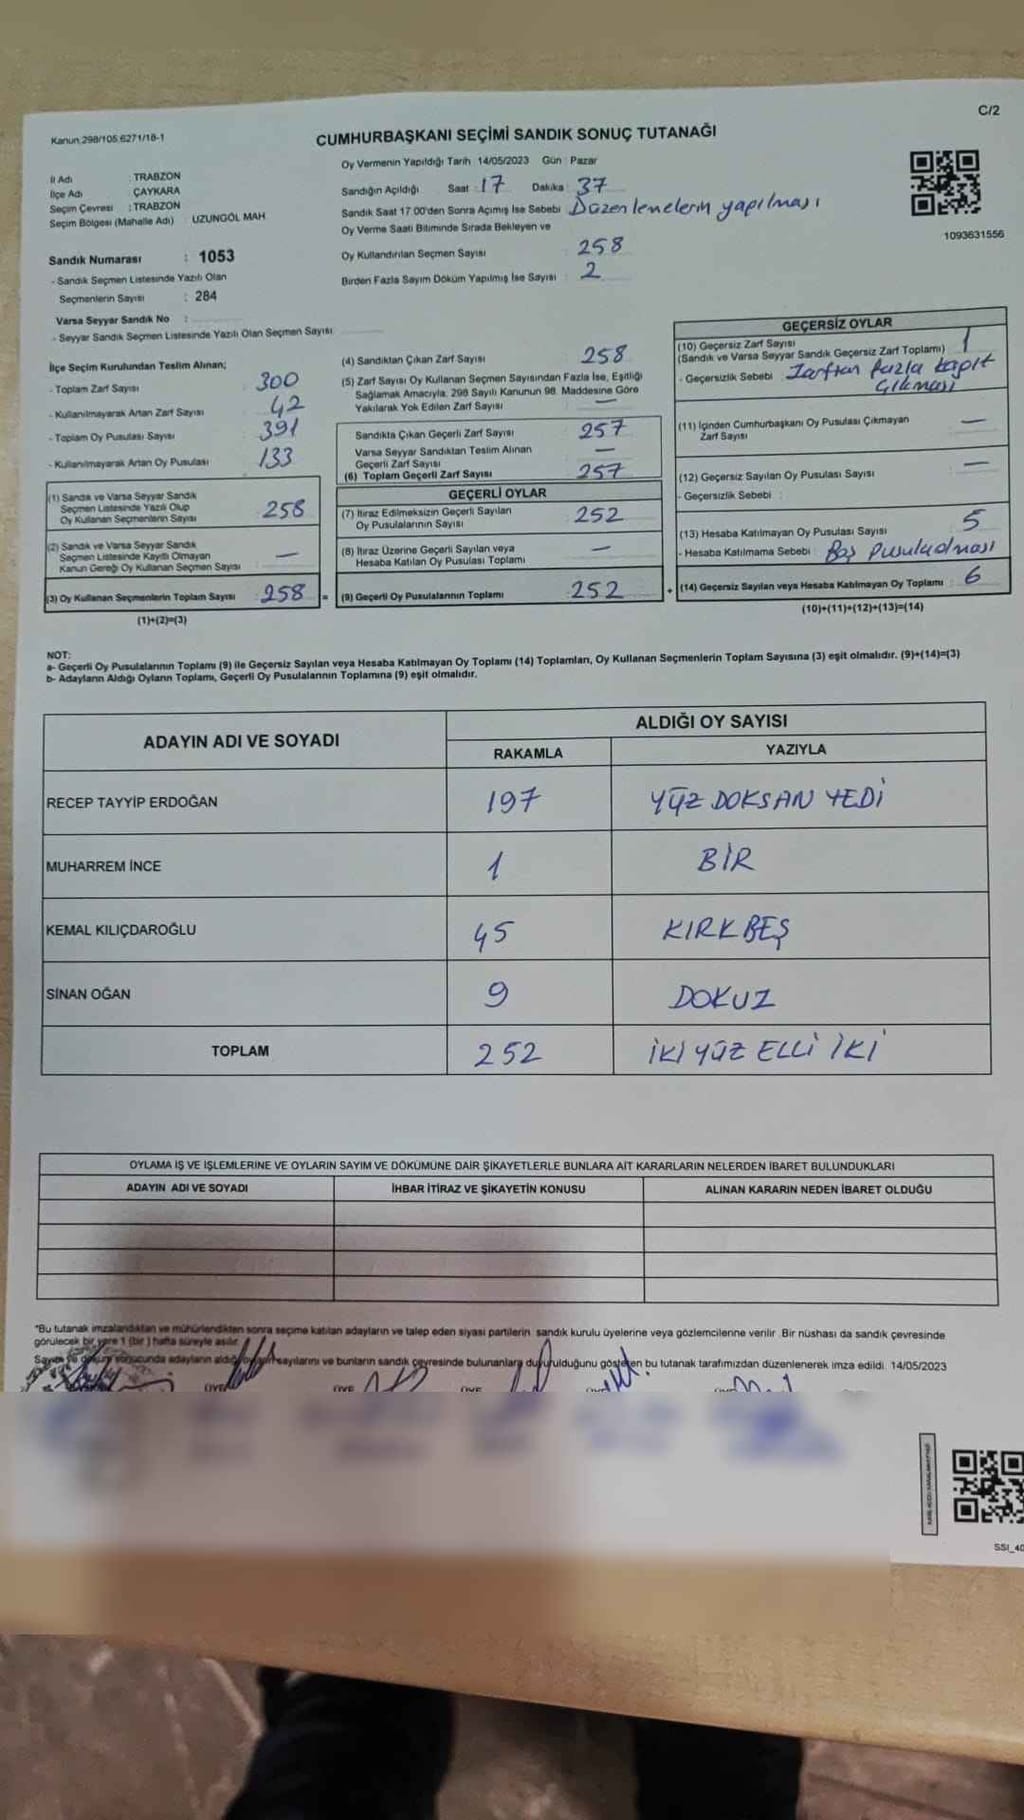 C/2
Kanun:298/105,6271/18-1
CUMHURBAŞKANI SEÇİMİ SANDIK SONUÇ TUTANAĞI
İl Adı TRABZON
İlçe Adı ÇAYKARA
Seçim Çevresi : TRABZON
Seçim Bölgesi (Mahalle Adı) UZUNGÖL MAH
Sandık Numarası : 1053
- Sandık Seçmen Listesinde Yazılı Olan
Seçmenlerin Sayısı : 284
Varsa Seyyar Sandık No :
- Seyyar Sandık Seçmen Listesinde Yazılı Olan Seçmen Sayısı
Oy Vermenin Yapıldığı Tarih 14/05/2023 Gün : Pazar
Sandığın Açıldığı Saat : 17 Dakika : 37
Sandık Saat 17.00'den Sonra Açılmış İse Sebebi : Düzenlemelerin yapılması
Oy Verme Saati Bitiminde Sırada Bekleyen ve
Oy Kullandırılan Seçmen Sayısı : 258
Birden Fazla Sayım Döküm Yapılmış İse Sayısı : 2
1093631556
İlçe Seçim Kurulundan Teslim Alınan;
- Toplam Zarf Sayısı 300
- Kullanılmayarak Artan Zarf Sayısı 42
- Toplam Oy Pusulası Sayısı 391
- Kullanılmayarak Artan Oy Pusulası 133
(1) Sandık ve Varsa Seyyar Sandık
Seçmen Listesinde Yazılı Olup
Oy Kullanan Seçmenlerin Sayısı 258
(2) Sandık ve Varsa Seyyar Sandık
Seçmen Listesinde Kayıtlı Olmayan
Kanun Gereği Oy Kullanan Seçmen Sayısı —
(3) Oy Kullanan Seçmenlerin Toplam Sayısı : 258 =
(1)+(2)=(3)
(4) Sandıktan Çıkan Zarf Sayısı 258
(5) Zarf Sayısı Oy Kullanan Seçmen Sayısından Fazla İse, Eşitliği
Sağlamak Amacıyla, 298 Sayılı Kanunun 98. Maddesine Göre
Yakılarak Yok Edilen Zarf Sayısı —
Sandıkta Çıkan Geçerli Zarf Sayısı 257
Varsa Seyyar Sandıktan Teslim Alınan
Geçerli Zarf Sayısı —
(6) Toplam Geçerli Zarf Sayısı 257
GEÇERLİ OYLAR
(7) İtiraz Edilmeksizin Geçerli Sayılan
Oy Pusulalarının Sayısı 252
(8) İtiraz Üzerine Geçerli Sayılan veya
Hesaba Katılan Oy Pusulası Toplamı —
(9) Geçerli Oy Pusulalarının Toplamı 252 +
GEÇERSİZ OYLAR
(10) Geçersiz Zarf Sayısı
(Sandık ve Varsa Seyyar Sandık Geçersiz Zarf Toplamı) 1
- Geçersizlik Sebebi : Zarftan fazla
çıkması
(11) İçinden Cumhurbaşkanı Oy Pusulası Çıkmayan
Zarf Sayısı —
(12) Geçersiz Sayılan Oy Pusulası Sayısı —
- Geçersizlik Sebebi :
(13) Hesaba Katılmayan Oy Pusulası Sayısı 5
- Hesaba Katılmama Sebebi : Boş Pusula olması
(14) Geçersiz Sayılan veya Hesaba Katılmayan Oy Toplamı : 6
(10)+(11)+(12)+(13)=(14)
NOT:
a- Geçerli Oy Pusulalarının Toplamı (9) ile Geçersiz Sayılan veya Hesaba Katılmayan Oy Toplamı (14) Toplamları, Oy Kullanan Seçmenlerin Toplam Sayısına (3) eşit olmalıdır. (9)+(14)=(3)
b- Adayların Aldığı Oyların Toplamı, Geçerli Oy Pusulalarının Toplamına (9) eşit olmalıdır.
ADAYIN ADI VE SOYADI ALDIĞI OY SAYISI
RAKAMLA YAZIYLA
RECEP TAYYİP ERDOĞAN 197 YÜZ DOKSAN YEDİ
MUHARREM İNCE 1 BİR
KEMAL KILIÇDAROĞLU 45 KIRKBEŞ
SİNAN OĞAN 9 DOKUZ
TOPLAM 252 İKİ YÜZ ELLİ İKİ
OYLAMA İŞ VE İŞLEMLERİNE VE OYLARIN SAYIM VE DÖKÜMÜNE DAİR ŞİKAYETLERLE BUNLARA AİT KARARLARIN NELERDEN İBARET BULUNDUKLARI
ADAYIN ADI VE SOYADI İHBAR İTİRAZ VE ŞİKAYETİN KONUSU ALINAN KARARIN NEDEN İBARET OLDUĞU
*Bu tutanak imzalandıktan ve mühürlendikten sonra seçime katılan adayların ve talep eden siyasi partilerin sandık kurulu üyelerine veya gözlemcilerine verilir. Bir nüshası da sandık çevresinde
görülecek bir yere 1 (bir) hafta süreyle asılır.
Sayım ve döküm sonucunda adayların aldığı oyların sayılarını ve bunların sandık çevresinde bulunanlara duyurulduğunu gösteren bu tutanak tarafımızdan düzenlenerek imza edildi. 14/05/2023
ÜYE ÜYE ÜYE
SSI_40